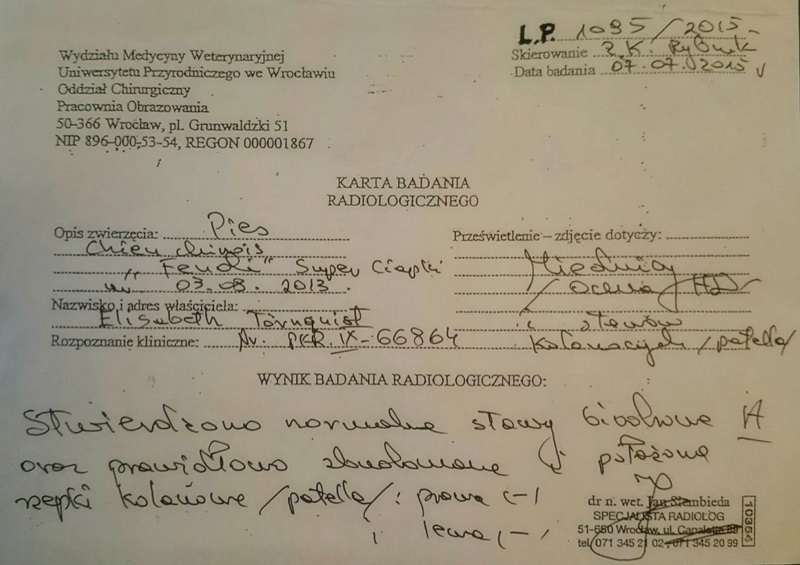 L.P. 1095/2015
Skierowanie R.K. Rybnik
Data badania 07.07.2015
Wydziału Medycyny Weterynaryjnej
Uniwersytetu Przyrodniczego we Wrocławiu
Oddział Chirurgiczny
Pracownia Obrazowania
50-366 Wrocław, pl. Grunwaldzki 51
NIP 896-000-53-54, REGON 000001867
KARTA BADANIA
RADIOLOGICZNEGO
Opis zwierzęcia: Pies
Chien chinois
"Fendi" Super Ciapki
ur. 03.08.2013.
Nazwisko i adres właściciela:
Elisabeth Törnquist
Rozpoznanie kliniczne: Nr. PKR. IX-66864
Prześwietlenie – zdjęcie dotyczy:
Miednicy
/ocena HD/
i stawów
kolanowych /patella/
WYNIK BADANIA RADIOLOGICZNEGO:
Stwierdzono normalne stawy biodrowe A
oraz prawidłowo zbudowane i położone
rzepki kolanowe /patella/: prawa (-)
i lewa (-)
dr n. wet. Jan Siembieda
SPECJALISTA RADIOLOG
51-680 Wrocław, ul.
tel. 071 345 21 02, 071 345 20 99
10364